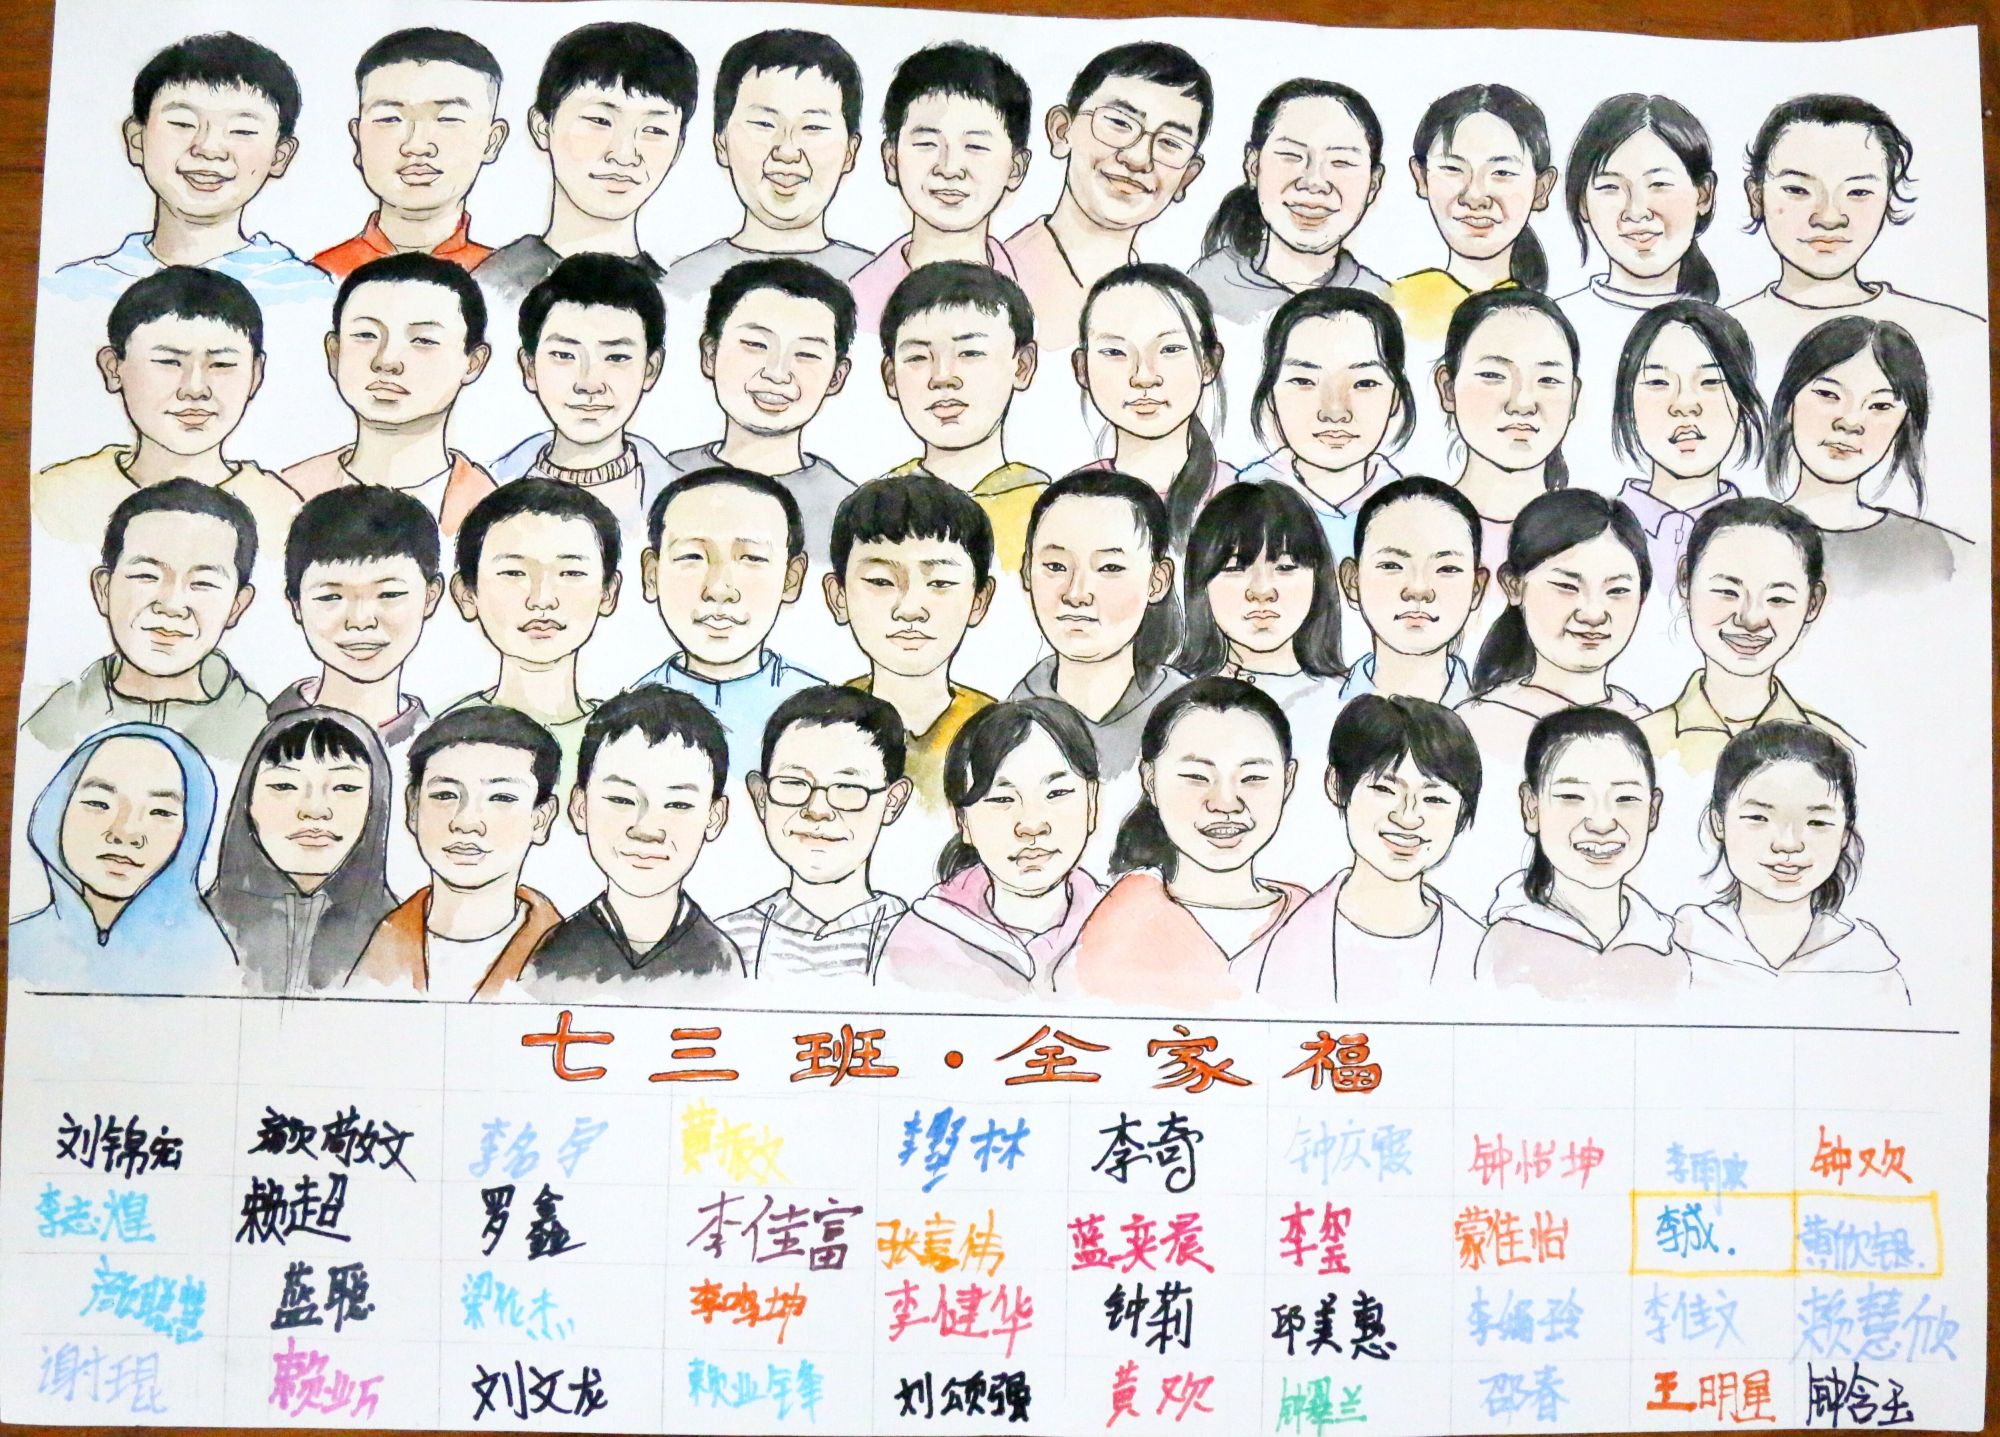 七三班·全家福
刘锦宏 颜敬文 李名宇 黄振文 李野林 李奇 钟庆霞 钟怡坤 李雨欢 钟欢
李志煌 赖超 罗鑫 李佳富 张嘉伟 蓝奕晨 李玺 蒙佳怡 李成. 黄欣银.
颜聪慧 蓝聪 李鸣坤 李健华 钟莉 邱美惠 李佳文 赖慧欣
谢琨 刘文龙 赖业锋 刘颂强 黄欢 钟翠兰 邵春 王明星 钟含玉